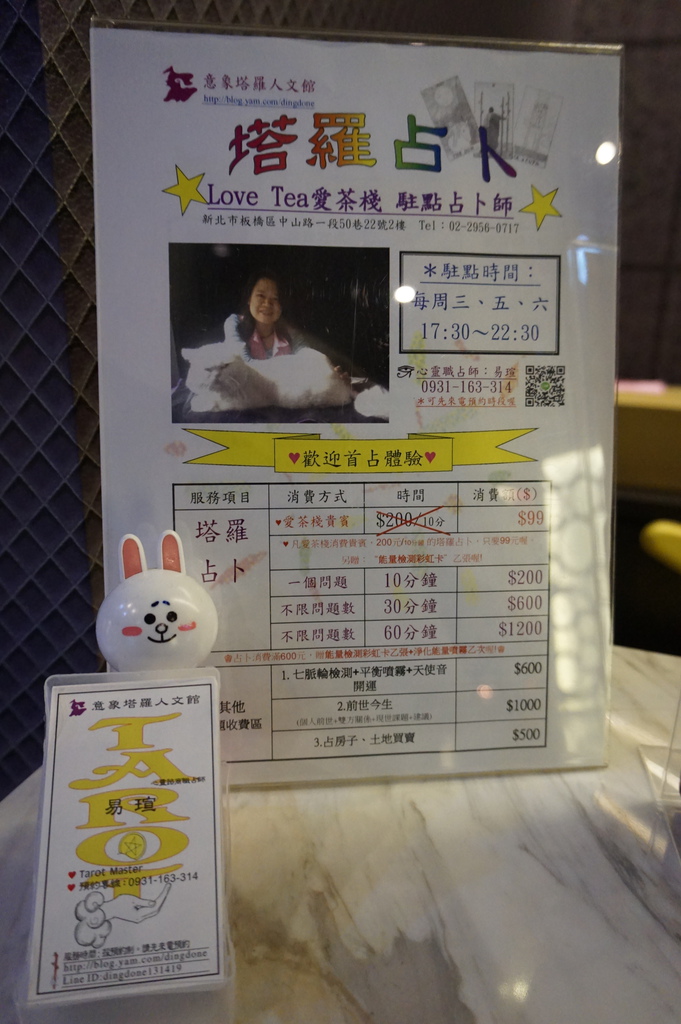 意象塔羅人文館
http://blog.yam.com/dingdone
塔羅占卜
Love Tea愛茶棧 駐點占卜師
新北市板橋區中山路一段50巷22號2樓 Tel：02-2956-0717
＊駐點時間：
每周三、五、六
17:30～22:30
心靈職占師：易瑄
0931-163-314
＊可先來電預約時段喔
♥歡迎首占體驗♥
服務項目 消費方式 時間 消費 ($)
塔羅占卜
♥愛茶棧貴賓 $200/10分 $99
♥凡愛茶棧消費貴賓，200元/10分鐘的塔羅占卜，只要99元喔，
另贈："能量檢測彩虹卡"乙張喔!
一個問題 10分鐘 $200
不限問題數 30分鐘 $600
不限問題數 60分鐘 $1200
占卜消費滿600元，贈能量檢測彩虹卡乙張+淨化能量噴霧乙次喔!
其他
收費區
1.七脈輪檢測+平衡噴霧+天使音
開運 $600
2.前世今生 $1000
(個人前世+雙方關係+現世課題+建議)
3.占房子、土地買賣 $500
意象塔羅人文館
TARO
易瑄
♥ Tarot Master
♥ 預約專線：0931-163-314
服務時間：採預約制，請先來電預約
http://blog.yam.com/dingdone
Line ID:dingdone131419